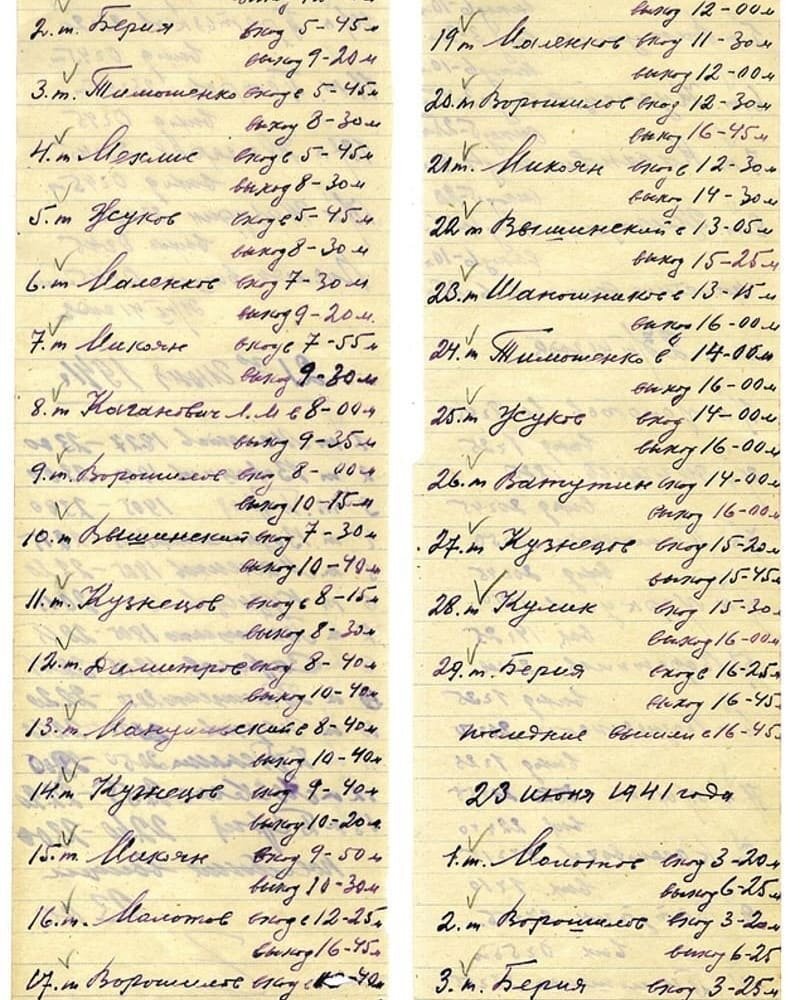 2. т. Берия вход 5-45м
выход 9-20м
3. т. Тимошенко вход в 5-45м
выход 8-30м
4. т Мехлис вход в 5-45м
выход 8-30м
5. т Жуков вход в 5-45м
выход 8-30м
6. т Маленков вход 7-30м
выход 9-20м.
7. т Микоян вход в 7-55м
выход 9-30м
8. т Каганович Л.М в 8-00м
выход 9-35м
9. т. Ворошилов вход 8-00м
выход 10-15м
10. т Вышинский вход 7-30м
выход 10-40м
11. т. Кузнецов вход в 8-15м
выход 8-30м
12. т. Димитров вход 8-40м
выход 10-40м
13. т Мануильский в 8-40м
выход 10-40м
14. т Кузнецов вход 9-40м
выход 10-20м
15. т. Микоян вход 9-50м
выход 10-30м
16. т. Молотов вход в 12-25м
выход 16-45м
17. т Ворошилов вход в -40м
выход 12-00м
19 т Маленков вход 11-30м
выход 12-00м
20. т Ворошилов вход 12-30м
выход 16-45м
21 т. Микоян вход в 12-30м
выход 14-30м
22. т Вышинский в 13-05м
выход 15-25м
23. т Шапошников в 13-15м
выход 16-00м
24. т Тимошенко в 14-00м
выход 16-00м
25. т Жуков вход 14-00м
выход 16-00м
26. т Ватутин вход 14-00м
выход 16-00м
27. т Кузнецов вход 15-20м
выход 15-45м
28. т Кулик вход 15-30
выход 16-00м
29. т. Берия вход в 16-25м
выход 16-45
Последние вышли в 16-45
23 июня 1941 года
1. т. Молотов вход 3-20м
выход 6-25м
2. т Ворошилов вход 3-20м
выход 6-25
3. т. Берия вход 3-25м